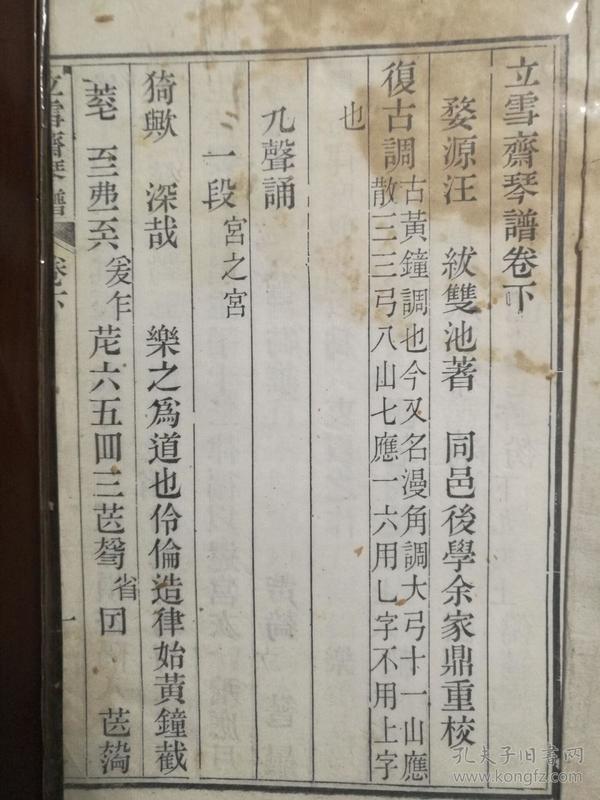 立雪齋琴譜卷下
婺源汪　紱雙池著　同邑後學余家鼎重校
復古調
古黃鐘調也今又名漫角調大弓十一山應
散二三弓八山七應一六用乚字不用上字
也
九聲誦
一段宮之宮
猗歟　深哉　樂之爲道也伶倫造律始黃鐘截
爰乍
六五四三
省
立雪齋琴譜
卷下
一
孔夫子旧书网
www.kongfz.com